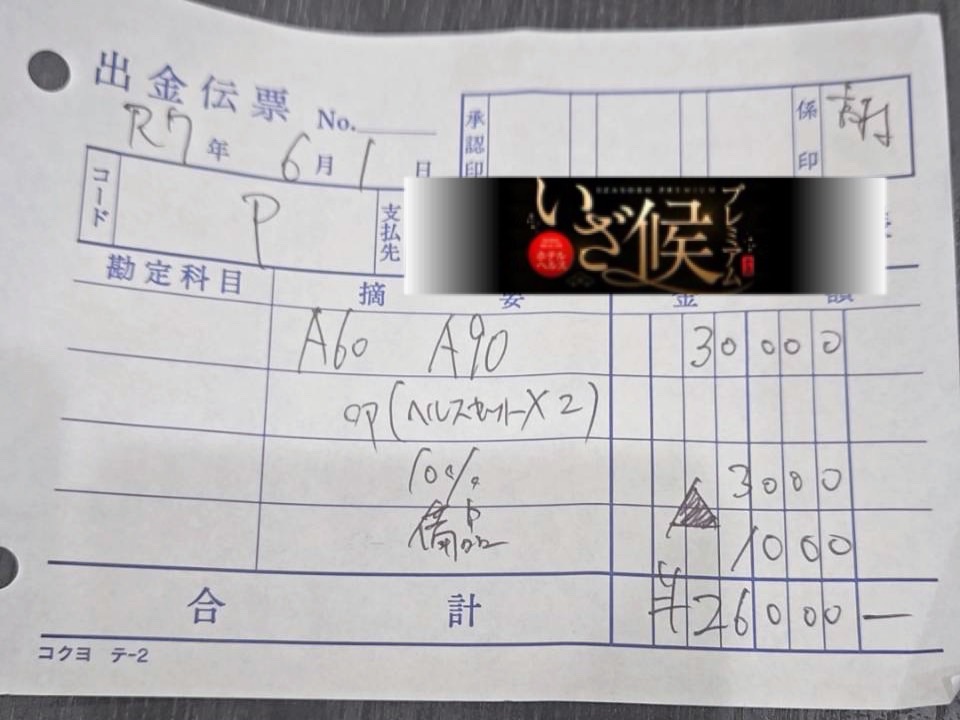 出金伝票 No.
承認印 係印
R7年 6月 1日
コード P 支払先
いざ候 プレミアム
ホテルヘルス
勘定科目 摘要 金額
A60 A90 30000
op(ヘルスセット×2)
10% 3000
▲
備品 1000
合計 ¥26000-
コクヨ テ-2